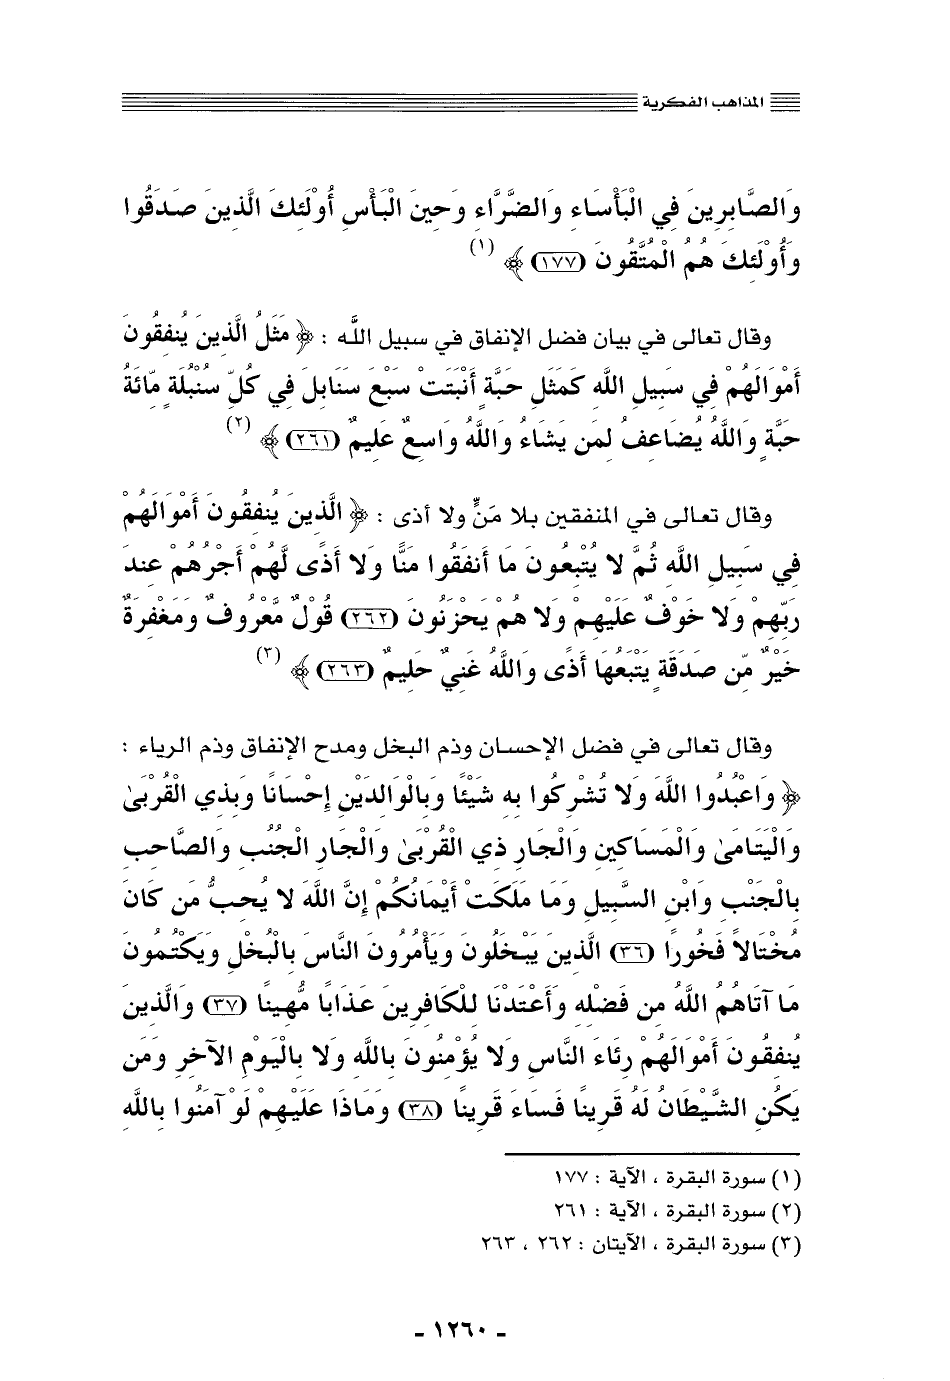 المذاهب الفكرية
وَالصَّابِرِينَ فِي الْبَأْسَاءِ وَالضَّرَّاءِ وَحِينَ الْبَأْسِ أُوْلَئِكَ الَّذِينَ صَدَقُوا
وَأُوْلَئِكَ هُمُ الْمُتَّقُونَ (١٧٧) ﴾ (١)
وقال تعالى في بيان فضل الإنفاق في سبيل اللَّه : ﴿ مَثَلُ الَّذِينَ يُنفِقُونَ
أَمْوَالَهُمْ فِي سَبِيلِ اللَّهِ كَمَثَلِ حَبَّةٍ أَنْبَتَتْ سَبْعَ سَنَابِلَ فِي كُلِّ سُنْبُلَةٍ مِّائَةُ
حَبَّةٍ وَاللَّهُ يُضَاعِفُ لِمَن يَشَاءُ وَاللَّهُ وَاسِعٌ عَلِيمٌ (٢٦١) ﴾ (٢)
وقال تعالى في المنفقين بلا مَنٍّ ولا أذى : ﴿ الَّذِينَ يُنفِقُونَ أَمْوَالَهُمْ
فِي سَبِيلِ اللَّهِ ثُمَّ لا يُتْبِعُونَ مَا أَنفَقُوا مَنًّا وَلا أَذًى لَّهُمْ أَجْرُهُمْ عِندَ
رَبِّهِمْ وَلا خَوْفٌ عَلَيْهِمْ وَلا هُمْ يَحْزَنُونَ (٢٦٢) قُوْلٌ مَّعْرُوفٌ وَمَغْفِرَةٌ
خَيْرٌ مِّن صَدَقَةٍ يَتْبَعُهَا أَذًى وَاللَّهُ غَنِيٌّ حَلِيمٌ (٢٦٣) ﴾ (٣)
وقال تعالى في فضل الإحسان وذم البخل ومدح الإنفاق وذم الرياء :
﴿ وَاعْبُدُوا اللَّهَ وَلا تُشْرِكُوا بِهِ شَيْئًا وَبِالْوَالِدَيْنِ إِحْسَانًا وَبِذِي الْقُرْبَىٰ
وَالْيَتَامَىٰ وَالْمَسَاكِينِ وَالْجَارِ ذِي الْقُرْبَىٰ وَالْجَارِ الْجُنُبِ وَالصَّاحِبِ
بِالْجَنْبِ وَابْنِ السَّبِيلِ وَمَا مَلَكَتْ أَيْمَانُكُمْ إِنَّ اللَّهَ لا يُحِبُّ مَن كَانَ
مُخْتَالاً فَخُورًا (٣٦) الَّذِينَ يَبْخَلُونَ وَيَأْمُرُونَ النَّاسَ بِالْبُخْلِ وَيَكْتُمُونَ
مَا آتَاهُمُ اللَّهُ مِن فَضْلِهِ وَأَعْتَدْنَا لِلْكَافِرِينَ عَذَابًا مُّهِينًا (٣٧) وَالَّذِينَ
يُنفِقُونَ أَمْوَالَهُمْ رِئَاءَ النَّاسِ وَلا يُؤْمِنُونَ بِاللَّهِ وَلا بِالْيَوْمِ الآخِرِ وَمَن
يَكُنِ الشَّيْطَانُ لَهُ قَرِينًا فَسَاءَ قَرِينًا (٣٨) وَمَاذَا عَلَيْهِمْ لَوْ آمَنُوا بِاللَّهِ
(١) سورة البقرة ، الآية : ١٧٧
(٢) سورة البقرة ، الآية : ٢٦١
(٣) سورة البقرة ، الآيتان : ٢٦٢ ، ٢٦٣
- ١٢٦٠ -